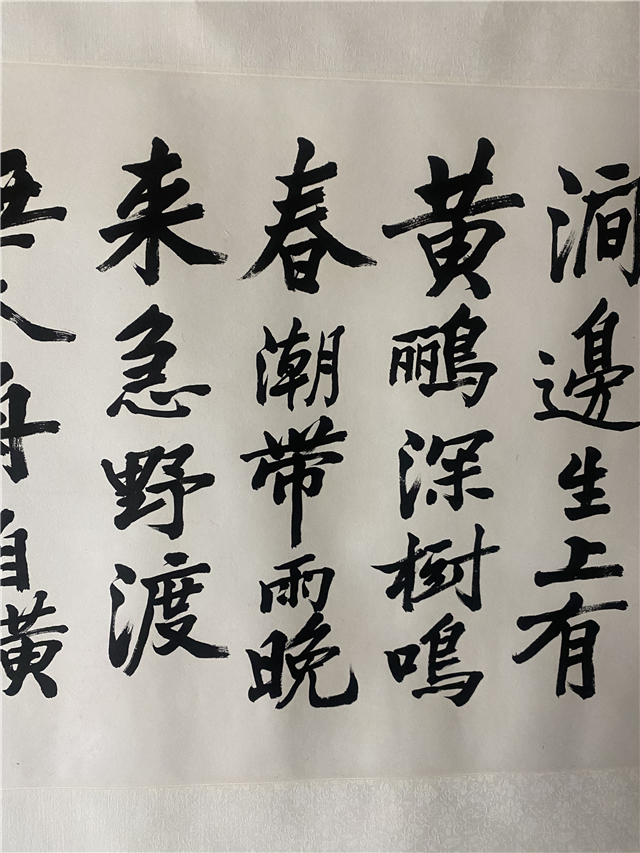 澗邊生上有
黄鹂深樹鳴
春潮带雨晚
来急野渡
無人舟自横